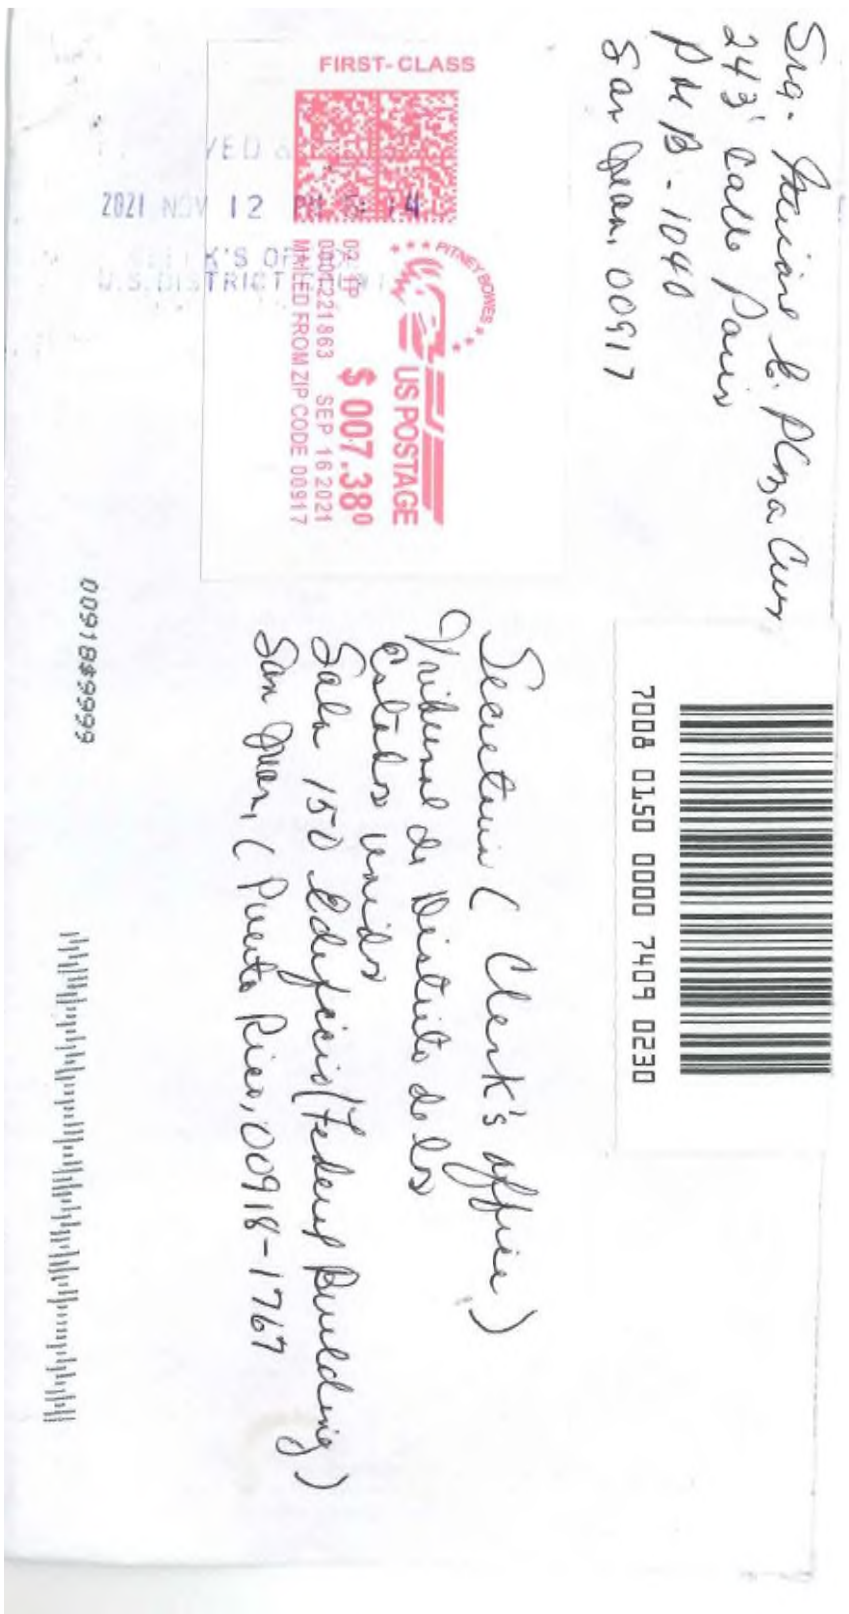 Sra.
243 Calle Paris
PMB-1040
San Juan, 00917
FIRST-CLASS
PITNEY BOWES
US POSTAGE
$ 007.38⁰
02 1P
0001221863 SEP 16 2021
MAILED FROM ZIP CODE 00917
2021 NOV 12 PM
CLERK'S OFFICE
U.S. DISTRICT COURT
7008 0150 0000 7409 0230
Secretaria ( Clerk's office )
Tribunal de Distrito de los
Estados Unidos
Sala 150 Edificio (Federal Building)
San Juan, (Puerto Rico, 00918-1767
00918$9999